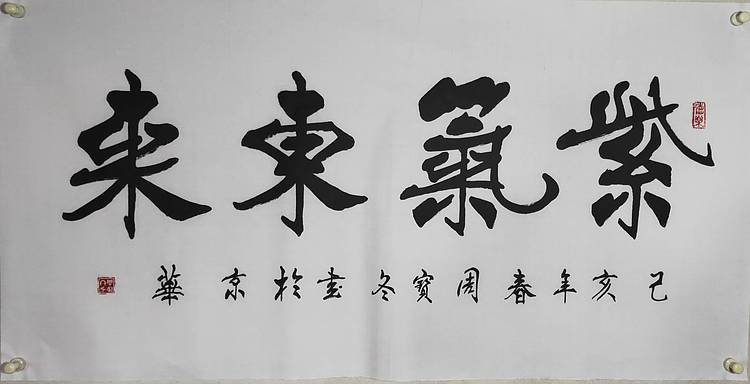 紫氣東来
己亥年春周寶冬书於京華